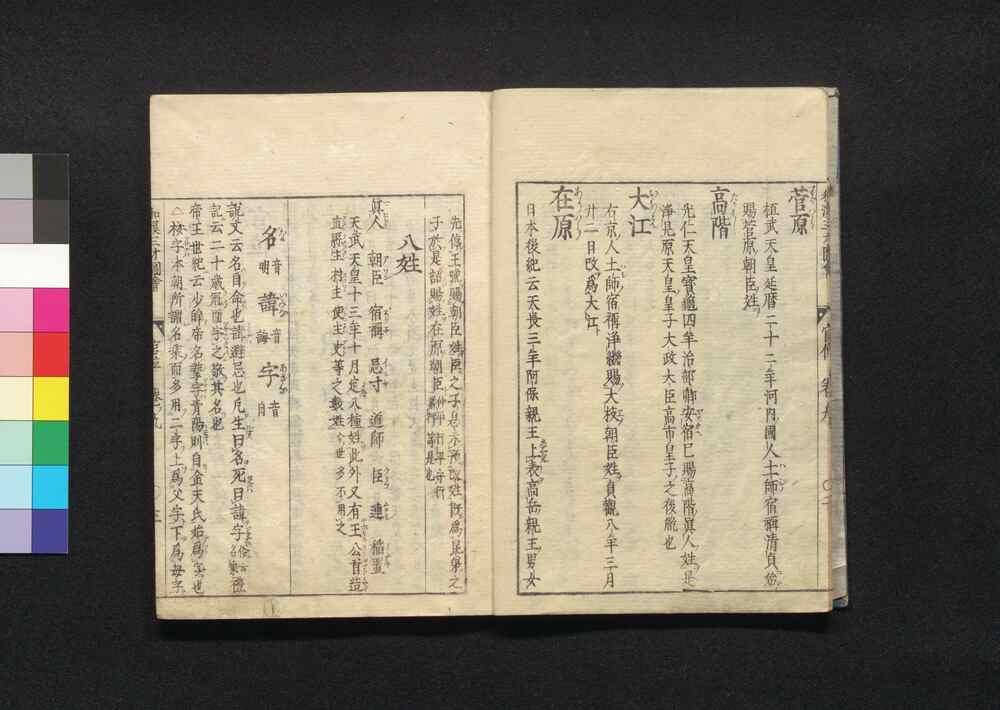 菅原
桓武天皇延暦二十二年河内國人土師宿禰清貞始
賜菅原朝臣姓
高階
先仁天皇寶龜四年治部卿安宿巳賜高階眞人姓是
浄見原天皇皇子大政大臣高市皇子之後胤也
大江
右京人土師宿禰浄繼賜大枝朝臣姓貞觀八年三月
廿一日改爲大江
在原
日本後紀云天長三年阿保親王上表高岳親王男女
先停王號賜朝臣姓臣之子
子於是詔賜姓在原朝臣仲平行平守平等是也
八姓
眞人 朝臣 宿禰 忌寸 道師 臣 連 稲置
天武天皇十三年十月定八種姓此外又有王公首造
直縣主村主使主史等之數姓今世多不用之
名 音明 諱 音誨 字 音自
説文云名自命也諱避忌也凡生曰名死曰諱字
記云二十歳冠而字之敬其名也
帝王世紀云少昊帝名摯字青陽則自金天氏始爲字也
△按字本朝所謂名乘而多用二字上爲父字下爲母字
和漢三才圖會